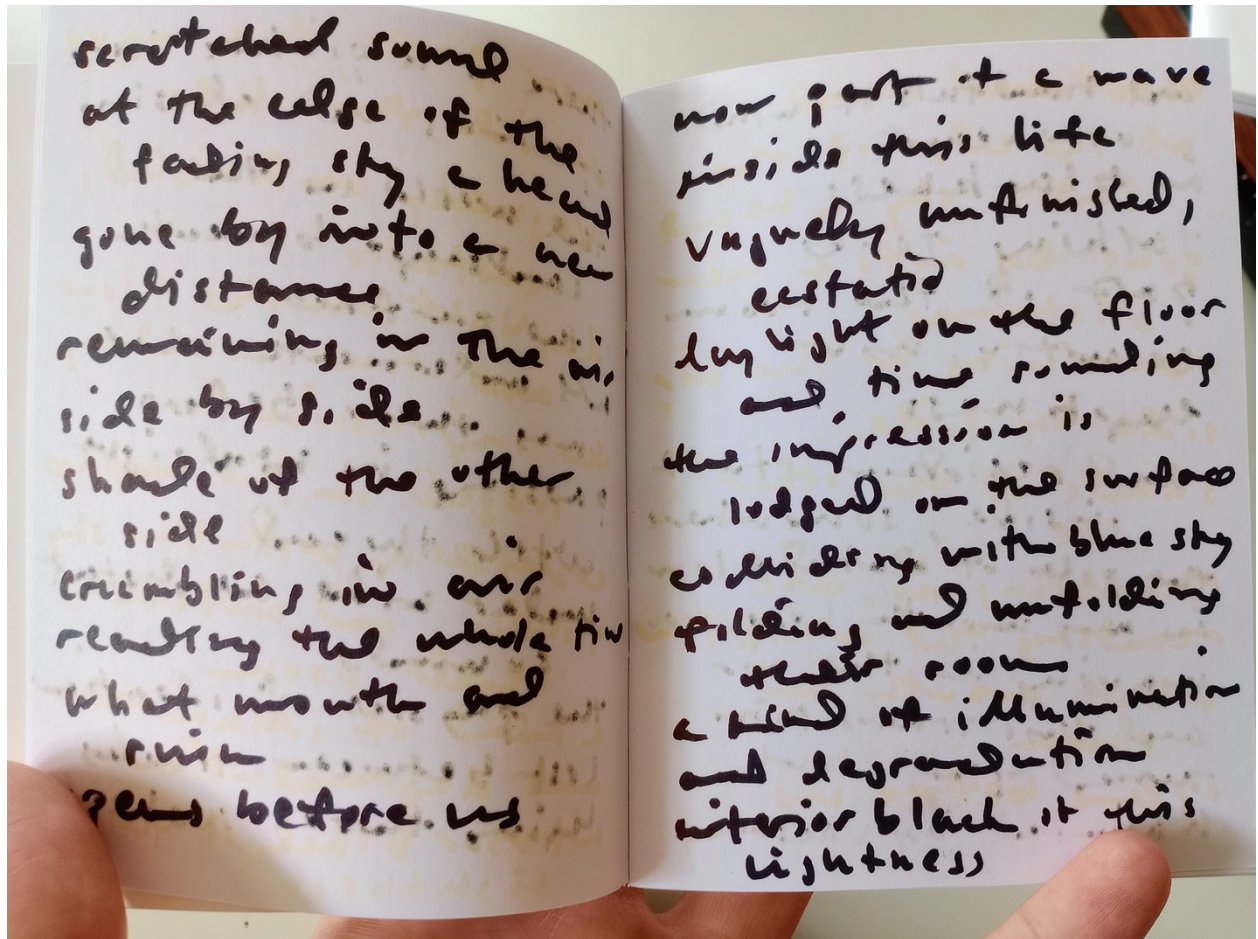 scratched sound
at the edge of the
fading sky a head
gone by into a new
distance
remaining in the air
side by side
shade of the other
side
crumbling in air
reading the whole tim
what mouth and
ruin
opens before us
now part of a wave
inside this life
vaguely unfinished,
ecstatic
day light on the floor
and time sounding
the impression is
lodged on the surface
colliding with blue sky
folding and unfolding
their room
a kind of illumination
and degradation
interior black of this
lightness